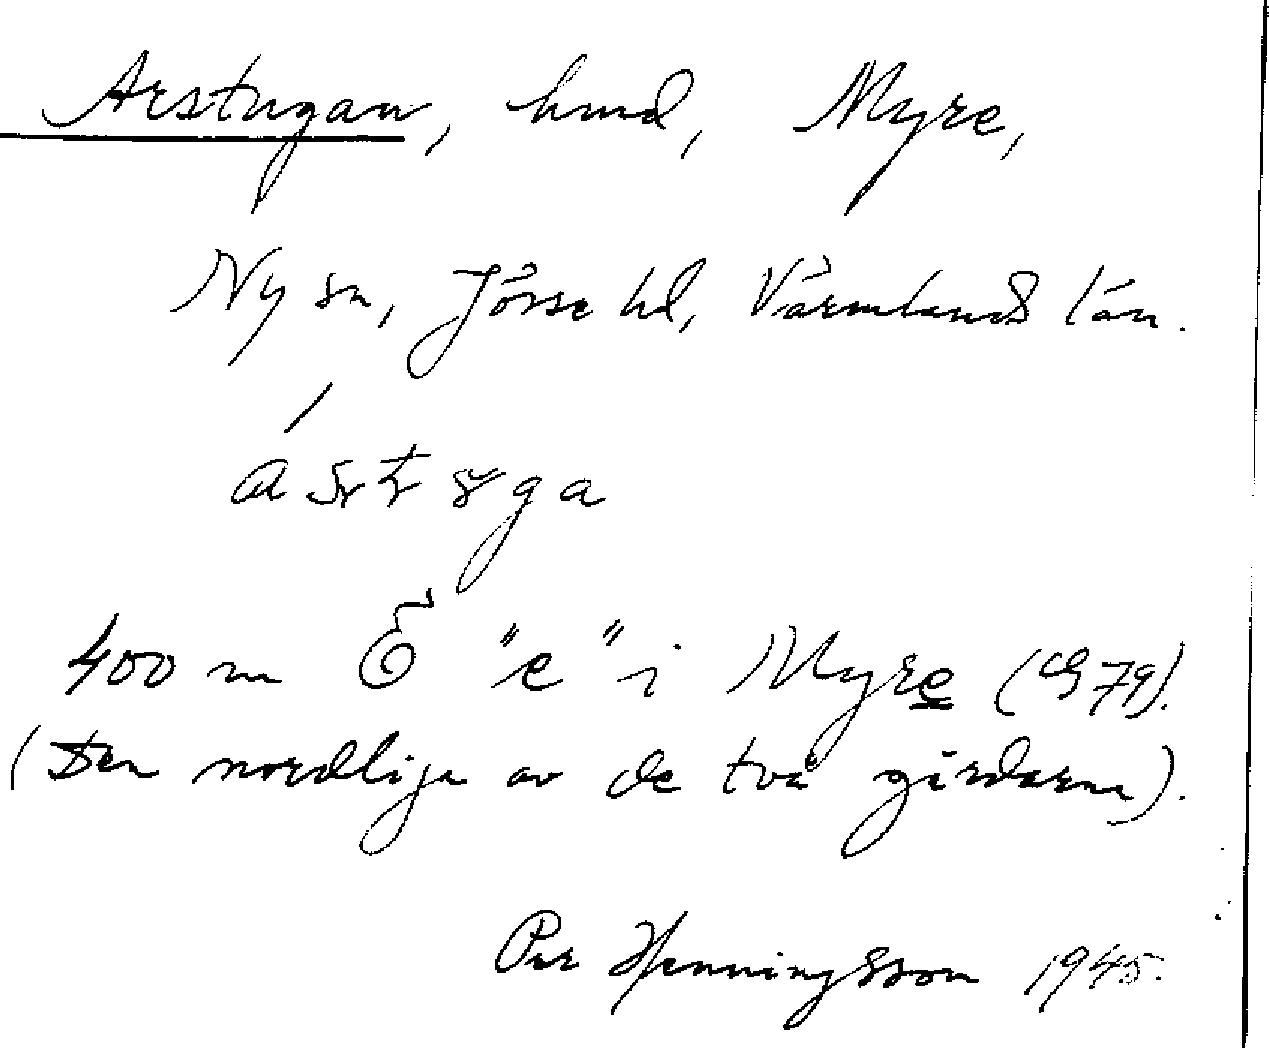 Arstugan, hmd, Myre,
Ny sn, Jösse hd, Värmlands län.
400 m Ö "e" i Myre (G 79).
(Den nordliga av de två gårdarna).
Per Henningsson 1945.